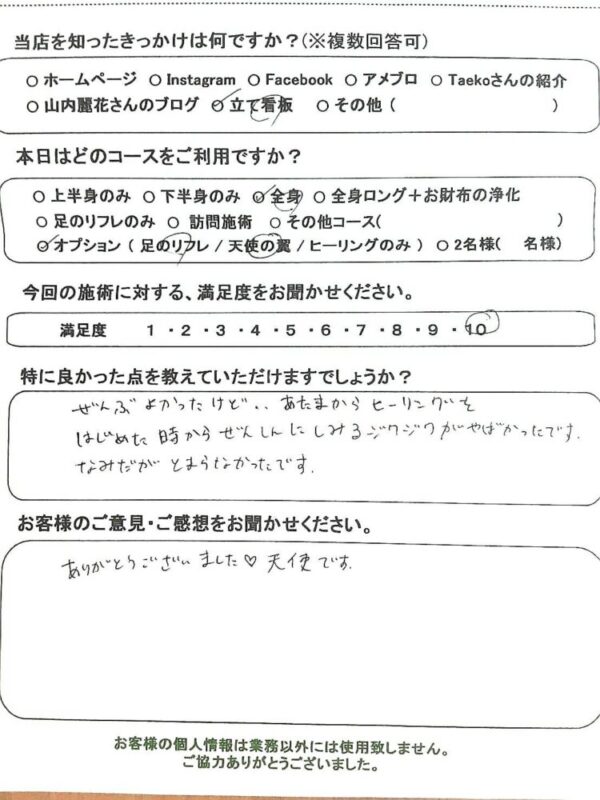 当店を知ったきっかけは何ですか？(※複数回答可)
○ ホームページ ○ Instagram ○ Facebook ○ アメブロ ○ Taekoさんの紹介
○ 山内麗花さんのブログ ○ 立て看板 ○ その他 ( )
本日はどのコースをご利用ですか？
○ 上半身のみ ○ 下半身のみ ○ 全身 ○ 全身ロング＋お財布の浄化
○ 足のリフレのみ ○ 訪問施術 ○ その他コース( )
○ オプション ( 足のリフレ / 天使の翼 / ヒーリングのみ ) ○ 2名様( 名様)
今回の施術に対する、満足度をお聞かせください。
満足度 1 ・ 2 ・ 3 ・ 4 ・ 5 ・ 6 ・ 7 ・ 8 ・ 9 ・ 10
特に良かった点を教えていただけますでしょうか？
ぜんぶよかったけど、、あたまからヒーリングを
はじめた時からぜんしんにしみるジワジワがやばかったです。
なみだがとまらなかったです。
お客様のご意見・ご感想をお聞かせください。
ありがとうございました♡ 天使です。
お客様の個人情報は業務以外には使用致しません。
ご協力ありがとうございました。